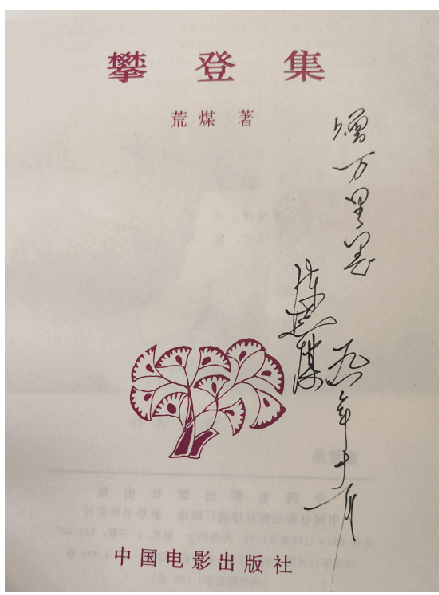 攀登集
荒煤 著
增万里墨
陈荒煤
九一年十一月
中国电影出版社